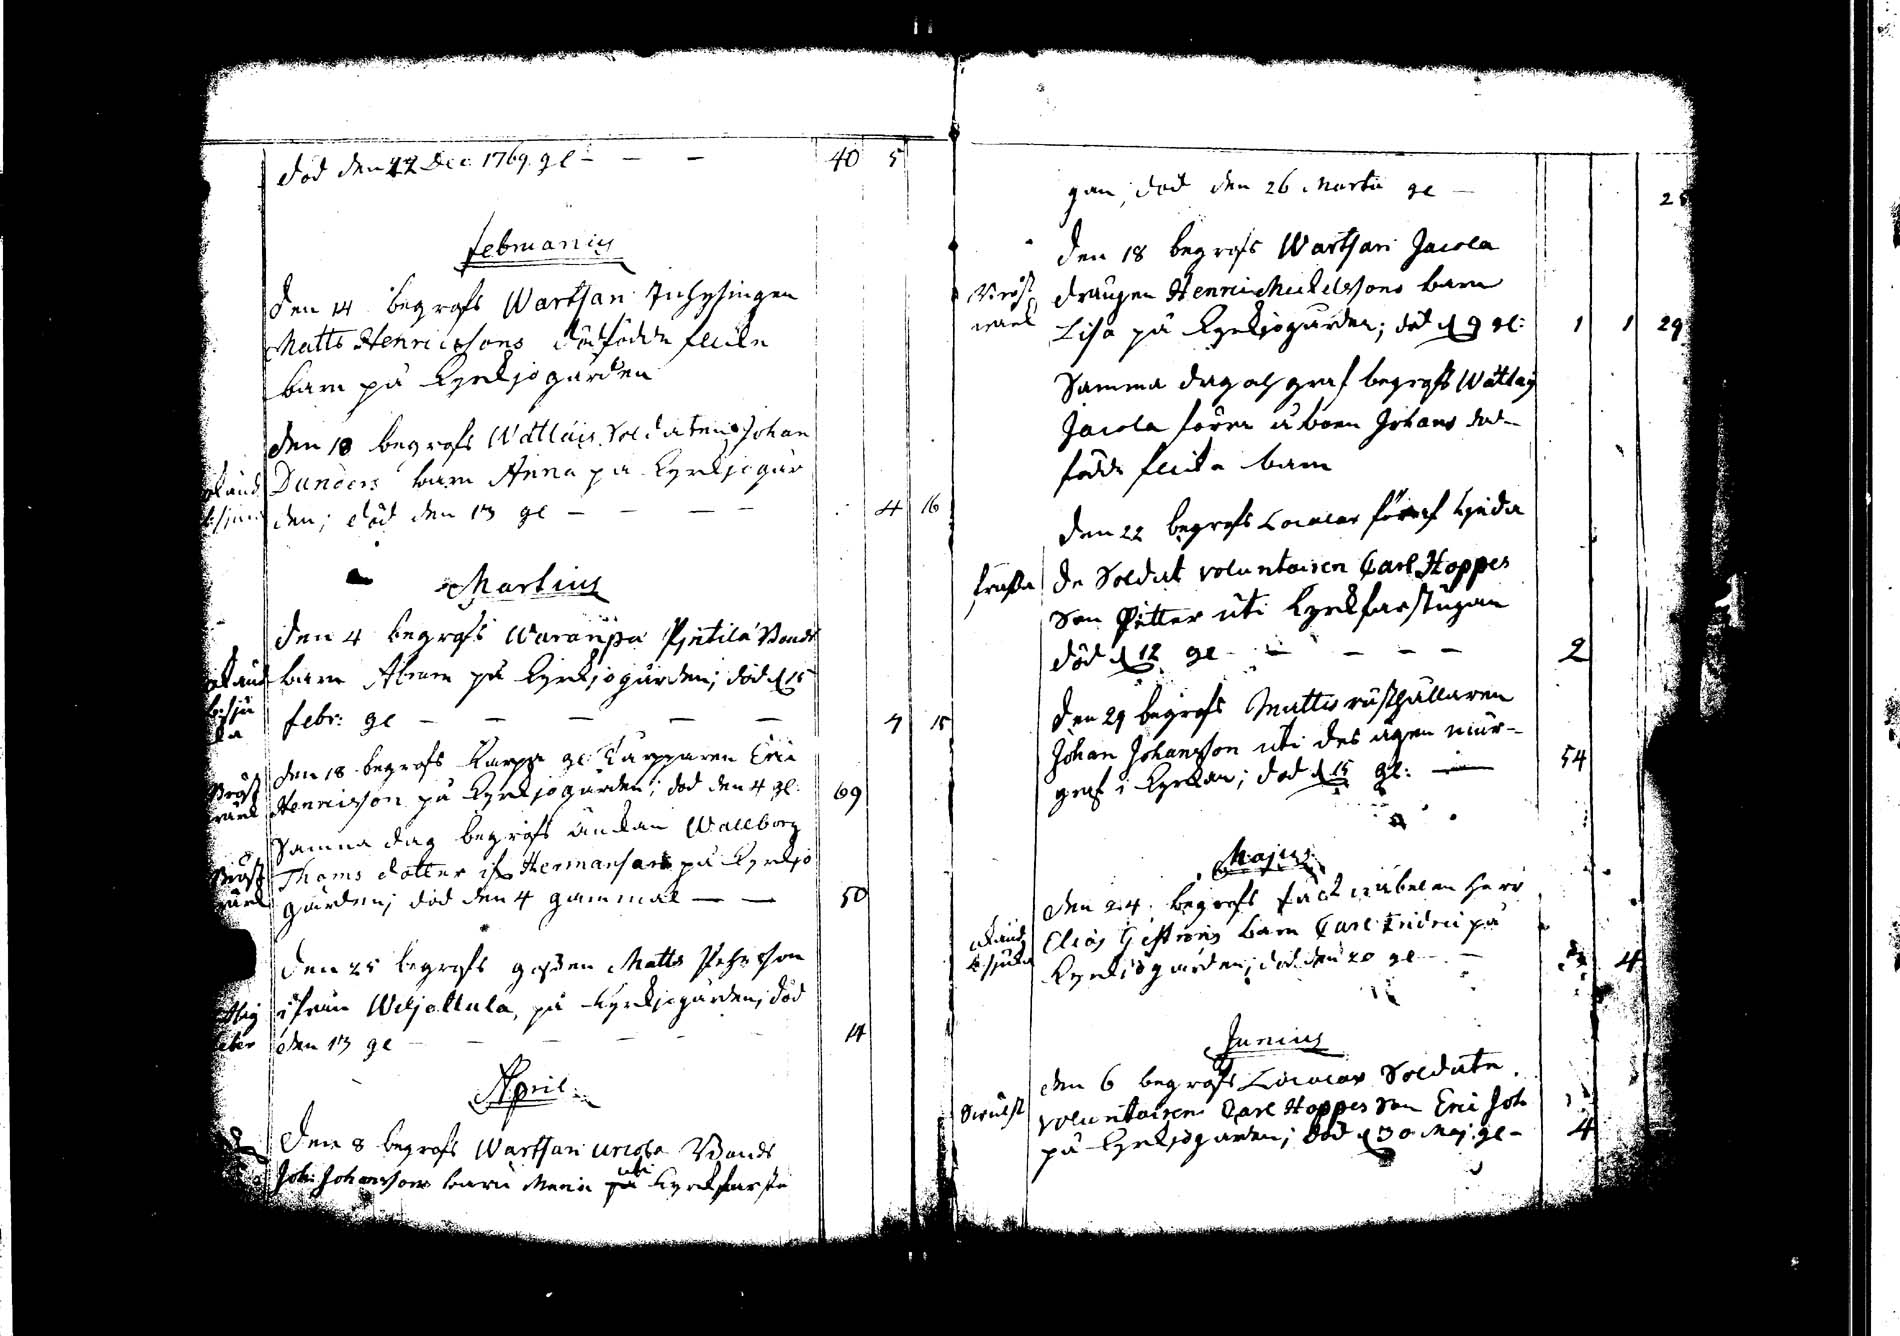 död den 22 Dec. 1769. gl — — — 40 5
Februarius
Den 14 begrofs Wartsari Inhysingen
Matts Henricssons dödfödde flicke
barn på Kyrkjogården
Den 18 begrofs Wattlais Soldatens Johan
Dunders barn Anna på Kyrkjogår
den; död den 13 gl — — — — 4 16
Martius
Den 4 begrofs Waranpä Pjntilä Bonde
barn Abram på Kyrkjogården; död d. 15
febr: gl — — — — — 7 15
Den 18 begrofs Karpp gl Karpparen Eric
Bröst
wärk
Henricsson på Kyrkjogården; död den 4 gl: 69
Samma dag begrofs änkan Wallborg
Bröst
wärk
Thoms dotter if. Hermansari på Kyrkjo
gården; död den 4 gammal — — 50
Den 25 begrofs gossen Matts Pehrsson
ifrån Wiljattula, på Kyrkjogården; död
den 13 gl — — — — — 14
April
Den 8 begrofs Wartsari Uriola Bonds
Joh: Johanssons barn Maria uti Kyrkfarstu
gan; död den 26 Martii gl — 25
Den 18 begrofs Wartsari Jacola
Bröst
wärk
drängen Henric Mickelssons barn
Lisa på Kyrkjogården; död d. 9 gl: 1 1 29
Samma dag och graf begrofs Wattlais
Jacola förra åboen Johans död-
födde flicke barn
Den 22 begrofs
Frassa
de Soldat voluntairen Carl Hoppes
Son Petter uti Kyrkfarstugan
död d. 12 gl — — — — 2
Den 29 begrofs Mattis rusthållaren
Johan Johansson uti des ägen mur-
graf i Kyrkan; död d. 15 gl: — 54
Majus
Den 24 begrofs
Elias Gestrins barn Carl Fridric på
Kyrkjogården; död den 20 gl — — 4
Junius
Den 6 begrofs Soldate
Swulst
voluntairens Carl Hoppes Son Eric Joh
på Kyrkjogården; död d. 30 Maj: gl — 4